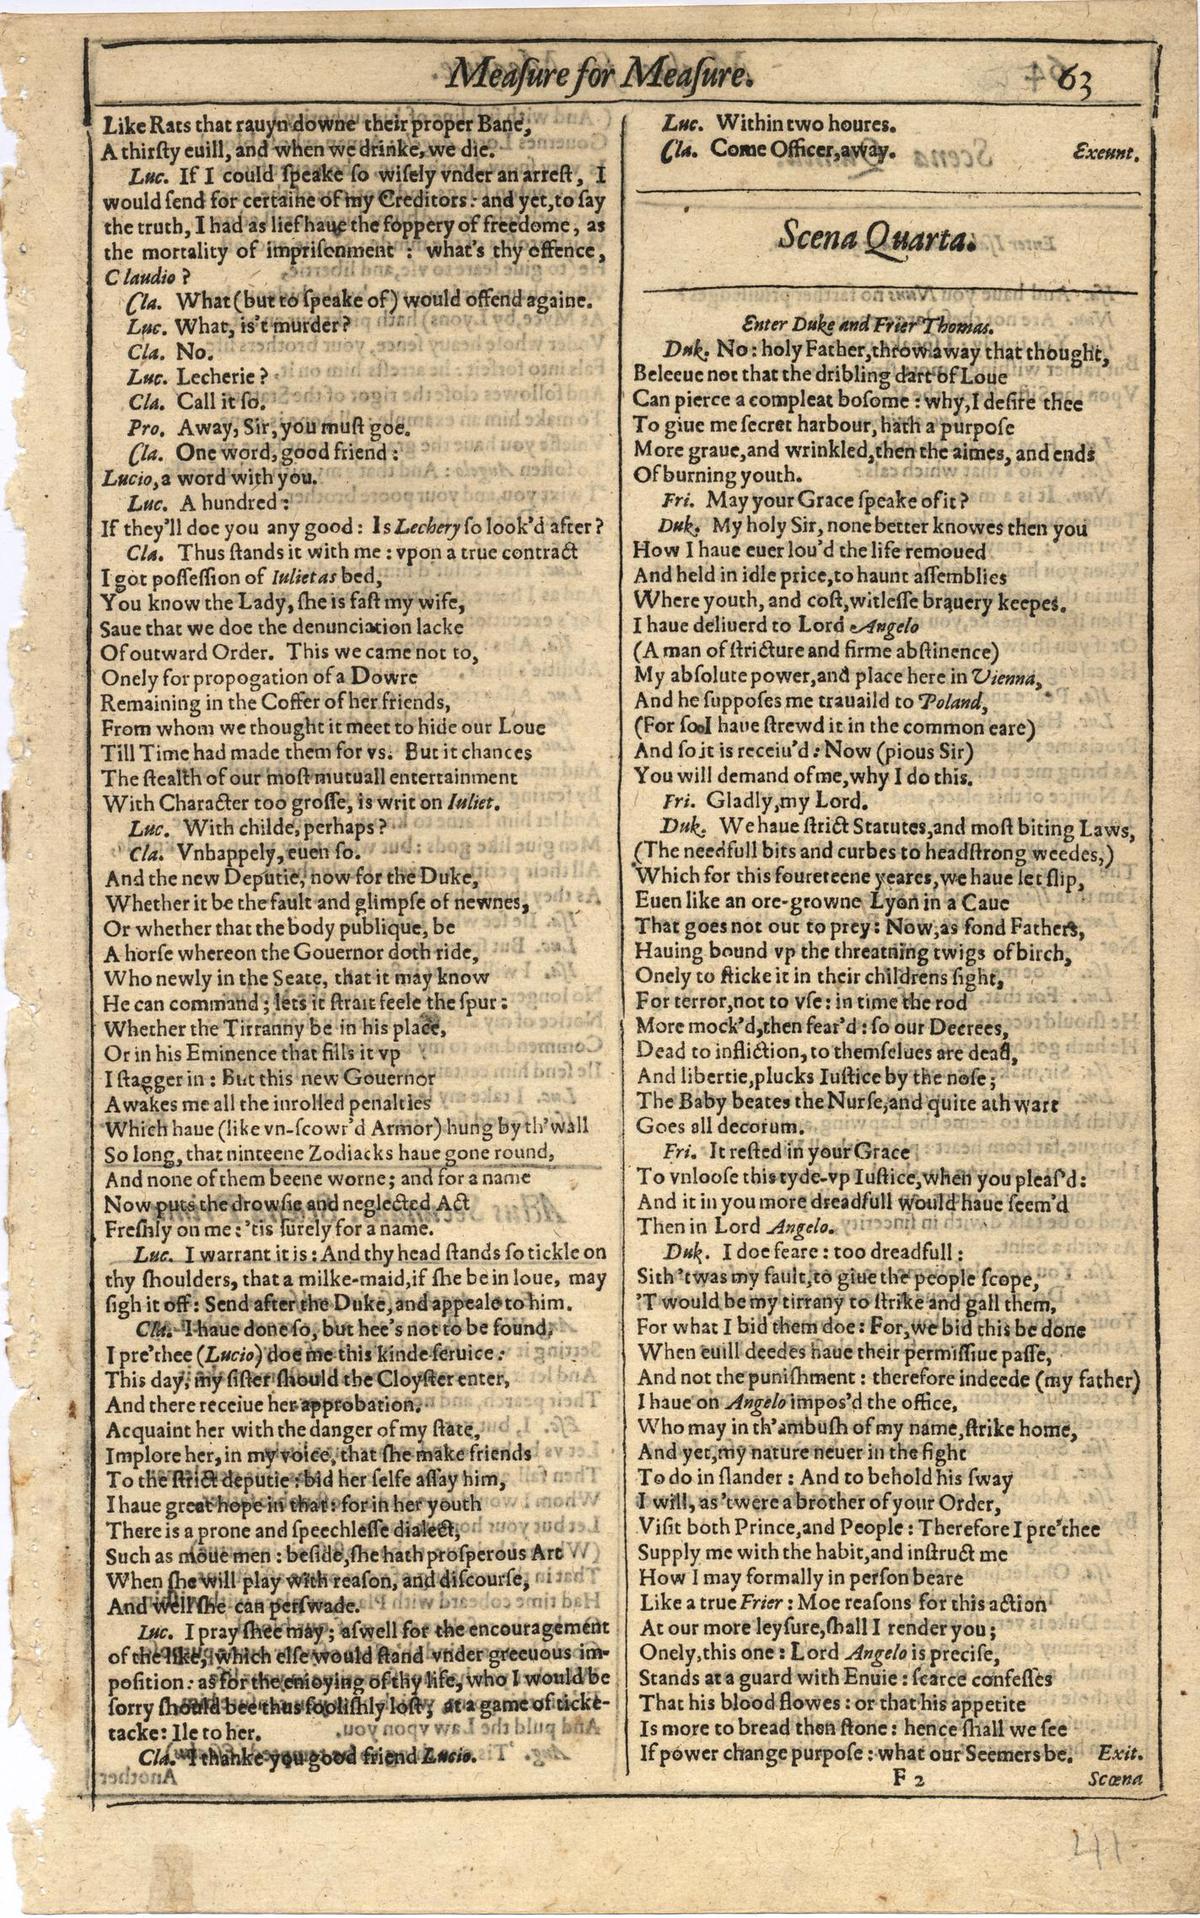 Meaſure for Meaſure. 63
Like Rats that rauyn downe their proper Bane,
A thirſty euill, and when we drinke, we die.
Luc. If I could ſpeake ſo wiſely vnder an arreſt, I
would ſend for certaine of my Creditors: and yet, to ſay
the truth, I had as lief haue the foppery of freedome, as
the mortality of impriſonment: what's thy offence,
Claudio?
Cla. What (but to ſpeake of) would offend againe.
Luc. What, is't murder?
Cla. No.
Luc. Lecherie?
Cla. Call it ſo.
Pro. Away, Sir, you muſt goe.
Cla. One word, good friend:
Lucio, a word with you.
Luc. A hundred:
If they'll doe you any good: Is Lechery ſo look'd after?
Cla. Thus ſtands it with me: vpon a true contract
I got poſſeſſion of Iulietas bed,
You know the Lady, ſhe is faſt my wife,
Saue that we doe the denunciation lacke
Of outward Order. This we came not to,
Onely for propogation of a Dowre
Remaining in the Coffer of her friends,
From whom we thought it meet to hide our Loue
Till Time had made them for vs. But it chances
The ſtealth of our moſt mutuall entertainment
With Character too groſſe, is writ on Iuliet.
Luc. With childe, perhaps?
Cla. Vnhappely, euen ſo.
And the new Deputie, now for the Duke,
Whether it be the fault and glimpſe of newnes,
Or whether that the body publique, be
A horſe whereon the Gouernor doth ride,
Who newly in the Seate, that it may know
He can command; lets it ſtrait feele the ſpur:
Whether the Tirranny be in his place,
Or in his Eminence that fills it vp
I ſtagger in: But this new Gouernor
Awakes me all the inrolled penalties
Which haue (like vn-ſcowr'd Armor) hung by th'wall
So long, that ninteene Zodiacks haue gone round,
And none of them beene worne; and for a name
Now puts the drowſie and neglected Act
Freſhly on me: 'tis ſurely for a name.
Luc. I warrant it is: And thy head ſtands ſo tickle on
thy ſhoulders, that a milke-maid, if ſhe be in loue, may
ſigh it off: Send after the Duke, and appeale to him.
Cla. I haue done ſo, but hee's not to be found.
I pre'thee (Lucio) doe me this kinde ſeruice:
This day, my ſiſter ſhould the Cloyſter enter,
And there receiue her approbation.
Acquaint her with the danger of my ſtate,
Implore her, in my voice, that ſhe make friends
To the ſtrict deputie: bid her ſelfe aſſay him,
I haue great hope in that: for in her youth
There is a prone and ſpeechleſſe dialect,
Such as moue men: beſide, ſhe hath proſperous Art
When ſhe will play with reaſon, and diſcourſe,
And well ſhe can perſwade.
Luc. I pray ſhee may; aſwell for the encouragement
of the like, which elſe would ſtand vnder greeuous im-
poſition: as for the enioying of thy life, who I would be
ſorry ſhould bee thus fooliſhly loſt, at a game of ticke-
tacke: Ile to her.
Cla. I thanke you good friend Lucio.
Luc. Within two houres.
Cla. Come Officer, away. Exeunt.
Scena Quarta.
Enter Duke and Frier Thomas.
Duk. No: holy Father, throw away that thought,
Beleeue not that the dribling dart of Loue
Can pierce a compleat boſome: why, I deſire thee
To giue me ſecret harbour, hath a purpoſe
More graue, and wrinkled, then the aimes, and ends
Of burning youth.
Fri. May your Grace ſpeake of it?
Duk. My holy Sir, none better knowes then you
How I haue euer lou'd the life remoued
And held in idle price, to haunt aſſemblies
Where youth, and coſt, witleſſe brauery keepes.
I haue deliuerd to Lord Angelo
(A man of ſtricture and firme abſtinence)
My absolute power, and place here in Vienna,
And he ſuppoſes me trauaild to Poland,
(For ſo I haue ſtrewd it in the common eare)
And ſo it is receiu'd: Now (pious Sir)
You will demand of me, why I do this.
Fri. Gladly, my Lord.
Duk. We haue ſtrict Statutes, and moſt biting Laws,
(The needfull bits and curbes to headſtrong weedes,)
Which for this foureteene yeares, we haue let ſlip,
Euen like an ore-growne Lyon in a Caue
That goes not out to prey: Now, as fond Fathers,
Hauing bound vp the threatning twigs of birch,
Onely to ſticke it in their childrens ſight,
For terror, not to vſe: in time the rod
More mock'd, then fear'd: ſo our Decrees,
Dead to infliction, to themſelues are dead,
And libertie, plucks Iuſtice by the noſe;
The Baby beates the Nurſe, and quite athwart
Goes all decorum.
Fri. It reſted in your Grace
To vnlooſe this tyde-vp Iuſtice, when you pleaſ'd:
And it in you more dreadfull would haue ſeem'd
Then in Lord Angelo.
Duk. I doe feare: too dreadfull:
Sith 'twas my fault, to giue the people ſcope,
'T would be my tirrany to ſtrike and gall them,
For what I bid them doe: For, we bid this be done
When euill deedes haue their permiſſiue paſſe,
And not the puniſhment: therefore indeede (my father)
I haue on Angelo impos'd the office,
Who may in th'ambuſh of my name, ſtrike home,
And yet, my nature neuer in the fight
To do in ſlander: And to behold his ſway
I will, as 'twere a brother of your Order,
Viſit both Prince, and People: Therefore I pre'thee
Supply me with the habit, and inſtruct me
How I may formally in perſon beare
Like a true Frier: Moe reaſons for this action
At our more leyſure, ſhall I render you;
Onely, this one: Lord Angelo is preciſe,
Stands at a guard with Enuie: ſcarce confeſſes
That his blood flowes: or that his appetite
Is more to bread then ſtone: hence ſhall we ſee
If power change purpoſe: what our Seemers be. Exit.
F 2 Scœna